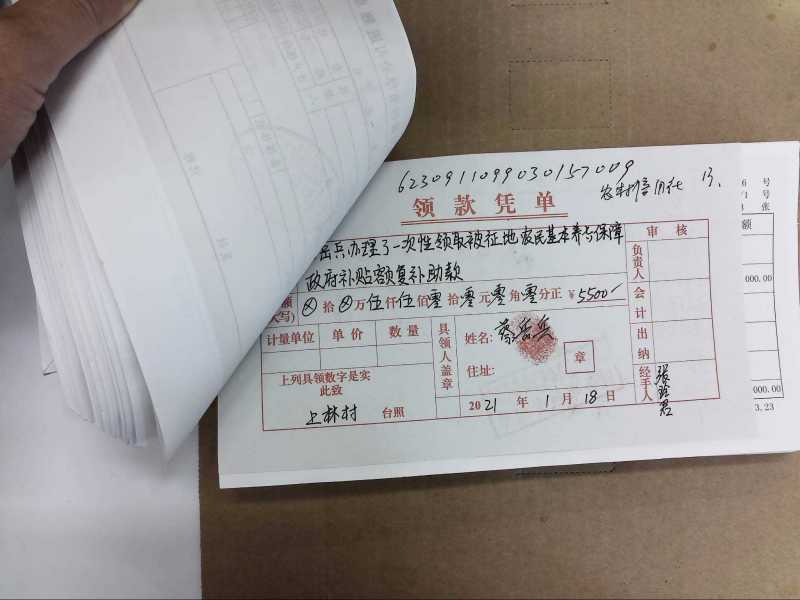 6230911099030157009
农村信用社
领款凭单
岳兵办理了一次性领取被征地农民基本养老保障
政府补贴额复补助款
额
大写)
⊗ 拾 ⊗ 万 伍 仟 伍 佰 零 拾 零 元 零 角 零 分正 ¥ 5500
计量单位 单价 数量
上列具领数字是实
此致
上林村 台照
具领人盖章
姓名: 蔡岳兵
住址:
章
2021 年 1 月 18 日
审核
负责人
会计
出纳
经手人
号
号
张
额
000.00
000.00
3.23